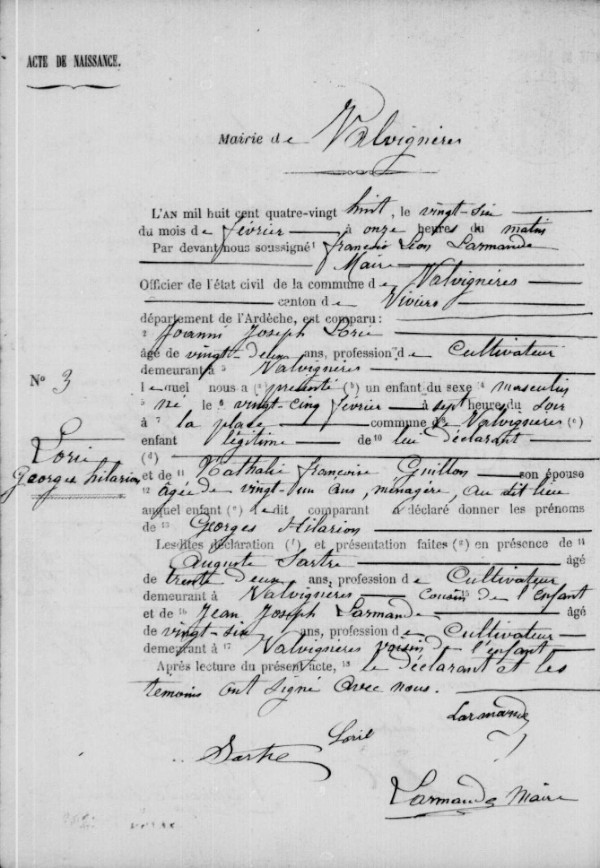 ACTE DE NAISSANCE.
Mairie de Valvignères
L'AN mil huit cent quatre-vingt huit, le vingt-six
du mois de février à onze heures du matin
Par devant nous soussigné François Léon Larmande
Maire
Officier de l'état civil de la commune de Valvignères
canton de Viviers
département de l'Ardèche, est comparu :
2 Joanni Joseph Lorie
âgé de vingt-deux ans, profession de Cultivateur
demeurant à 3 Valvignères
No 3
lequel nous a (a) présenté (b) un enfant du sexe 4 masculin
5 né le 6 vingt-cinq février à sept heure du soir
à 7 la place commune de Valvignères (c)
enfant légitime de 10 lui déclarant
(d)
Lorie
Georges hilarion
et de 11 Nathalie françoise Guillon son épouse
12 âgée de vingt-un ans, ménagère, au dit lieu
auquel enfant (e) ledit comparant a déclaré donner les prénoms
de 13 Georges Hilarion
Lesdites déclaration (f) et présentation faites (g) en présence de 14
Auguste Sartre âgé
de trente deux ans, profession de Cultivateur
demeurant à Valvignères cousin de l'enfant
et de 16 Jean Joseph Larmande âgé
de vingt-six ans, profession de Cultivateur
demeurant à 17 Valvignères voisin de l'enfant
Après lecture du présent acte, 18 le déclarant et les
temoins ont signé avec nous.
Larmande
Lorie
Sartre
Larmande Maire